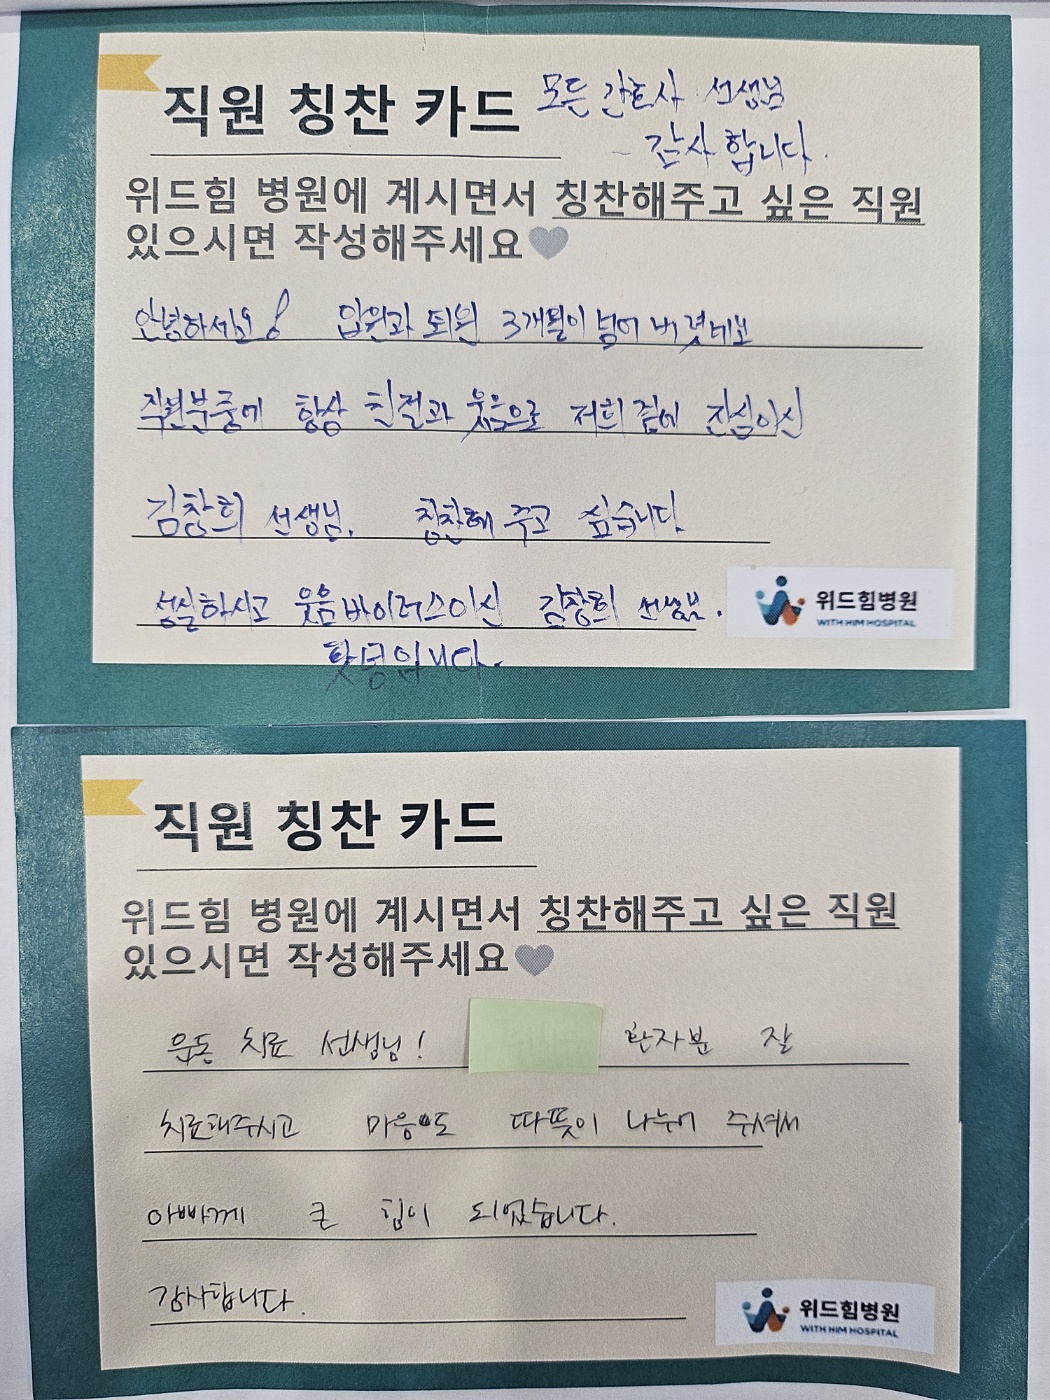 직원 칭찬 카드
모든 간호사 선생님
감사합니다.
위드힘 병원에 계시면서 칭찬해주고 싶은 직원
있으시면 작성해주세요
안녕하세요! 입원과 퇴원 3개월이 넘어 버렸네요
직원분중에 항상 친절과 웃음으로 저희 곁에 진심이신
김창희 선생님. 칭찬해 주고 싶습니다
성실하시고 웃음 바이러스이신 김창희 선생님.
핫팅입니다.
위드힘병원
WITH HIM HOSPITAL
직원 칭찬 카드
위드힘 병원에 계시면서 칭찬해주고 싶은 직원
있으시면 작성해주세요
치료 선생님! 환자분 잘
치료해주시고 마음도 따뜻이 나누어 주셔서
아빠께 큰 힘이 되었습니다.
감사합니다.
위드힘병원
WITH HIM HOSPITAL